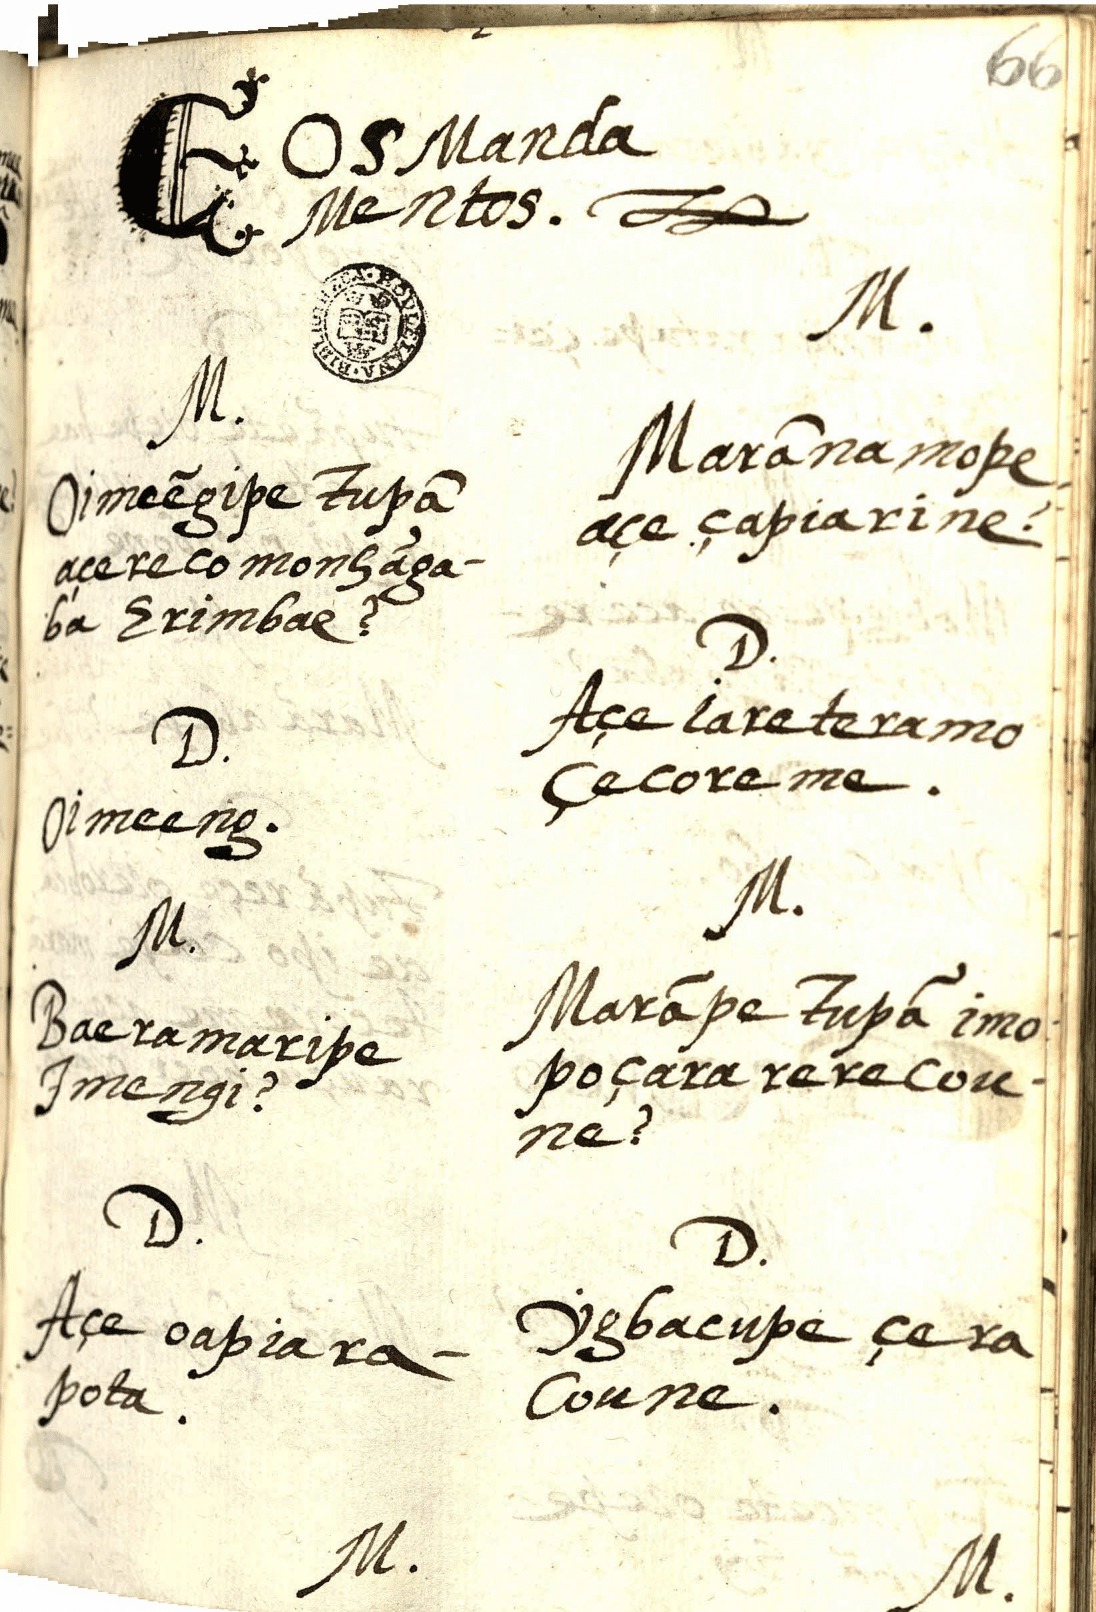 66
OS Manda
Mentos.
M.
Oimeẽgipe Tupã
açereco monhãga-
ba Erimbae?
D.
Oimeeng.
M.
Baeramaripe
Imengi?
D.
Açe oapiara-
pota.
M.
M.
Marãnamope
açe çapiarine?
D.
Açe iareteramo
Çecoreme.
M.
Marãpe Tupã imo
poçara rerecou-
ne?
D.
Ygbacupe çera
Coune.
M.